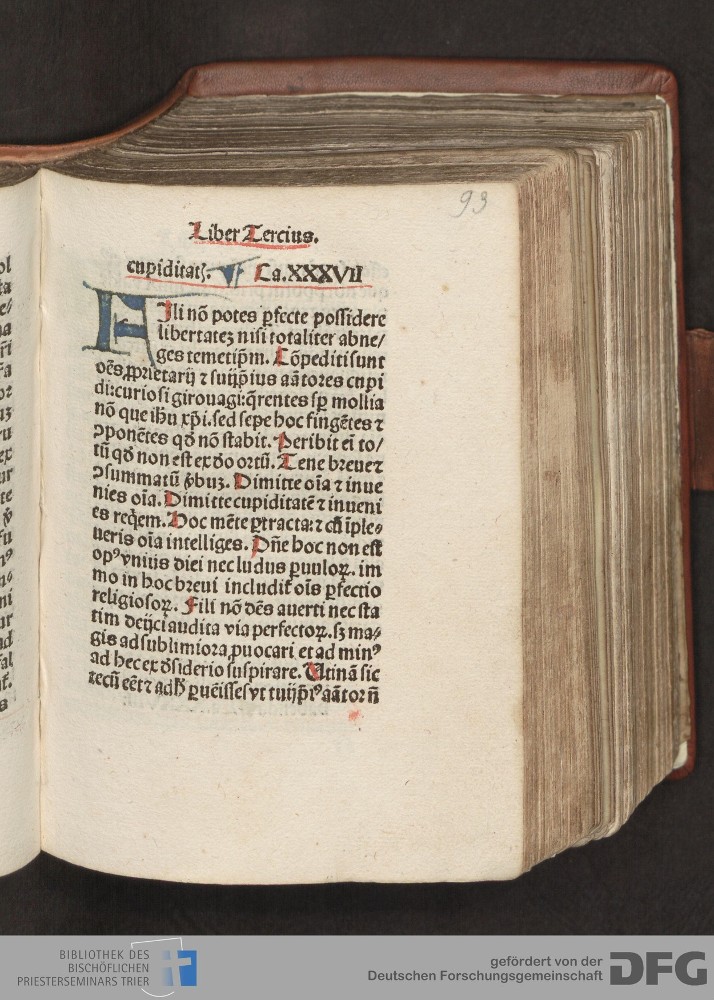 93
Liber Tercius.
cupiditatꝭ. ¶ Ca.XXXVII
FIli nõ potes ꝑfecte possidere
libertatẽ nisi totaliter abne/
ges temetip̃m. Cõpediti sunt
oẽs ꝓprietarij ⁊ suijp̃ius aãtores cupi
di: curiosi girouagi: q̃rentes sp̃ mollia
nõ que ih̃u xp̃i. sed sepe hoc fingẽtes ⁊
ꝯponẽtes qđ nõ stabit. Peribit ei to/
tũ qđ non est ex deo ortũ. Tene breue ⁊
ꝯsummatũ ꝟbuȝ. Dimitte oĩa ⁊ inue
nies oĩa. Dimitte cupiditatẽ ⁊ inueni
es reqẽm. Hoc mẽte ꝑtracta: ⁊ cũ iple/
ueris oĩa intelliges. Dñe hoc non est
opꝰ vnius diei nec ludus ꝑuuloꝝ. im
mo in hoc breui includit̃ oĩs ꝑfectio
religiosoꝝ. Fili nõ đes auerti nec sta
tim deijci audita via perfectoꝝ. sȝ ma/
gis ad sublimiora ꝓuocari et ad minꝰ
ad hec ex đsiderio suspirare. Utinã sic
tecũ eẽt ⁊ ad ħ ꝑuẽisses vt tuijp̃iꝰ aãtor ñ
BIBLIOTHEK DES
BISCHÖFLICHEN
PRIESTERSEMINARS TRIER
gefördert von der
Deutschen Forschungsgemeinschaft
DFG